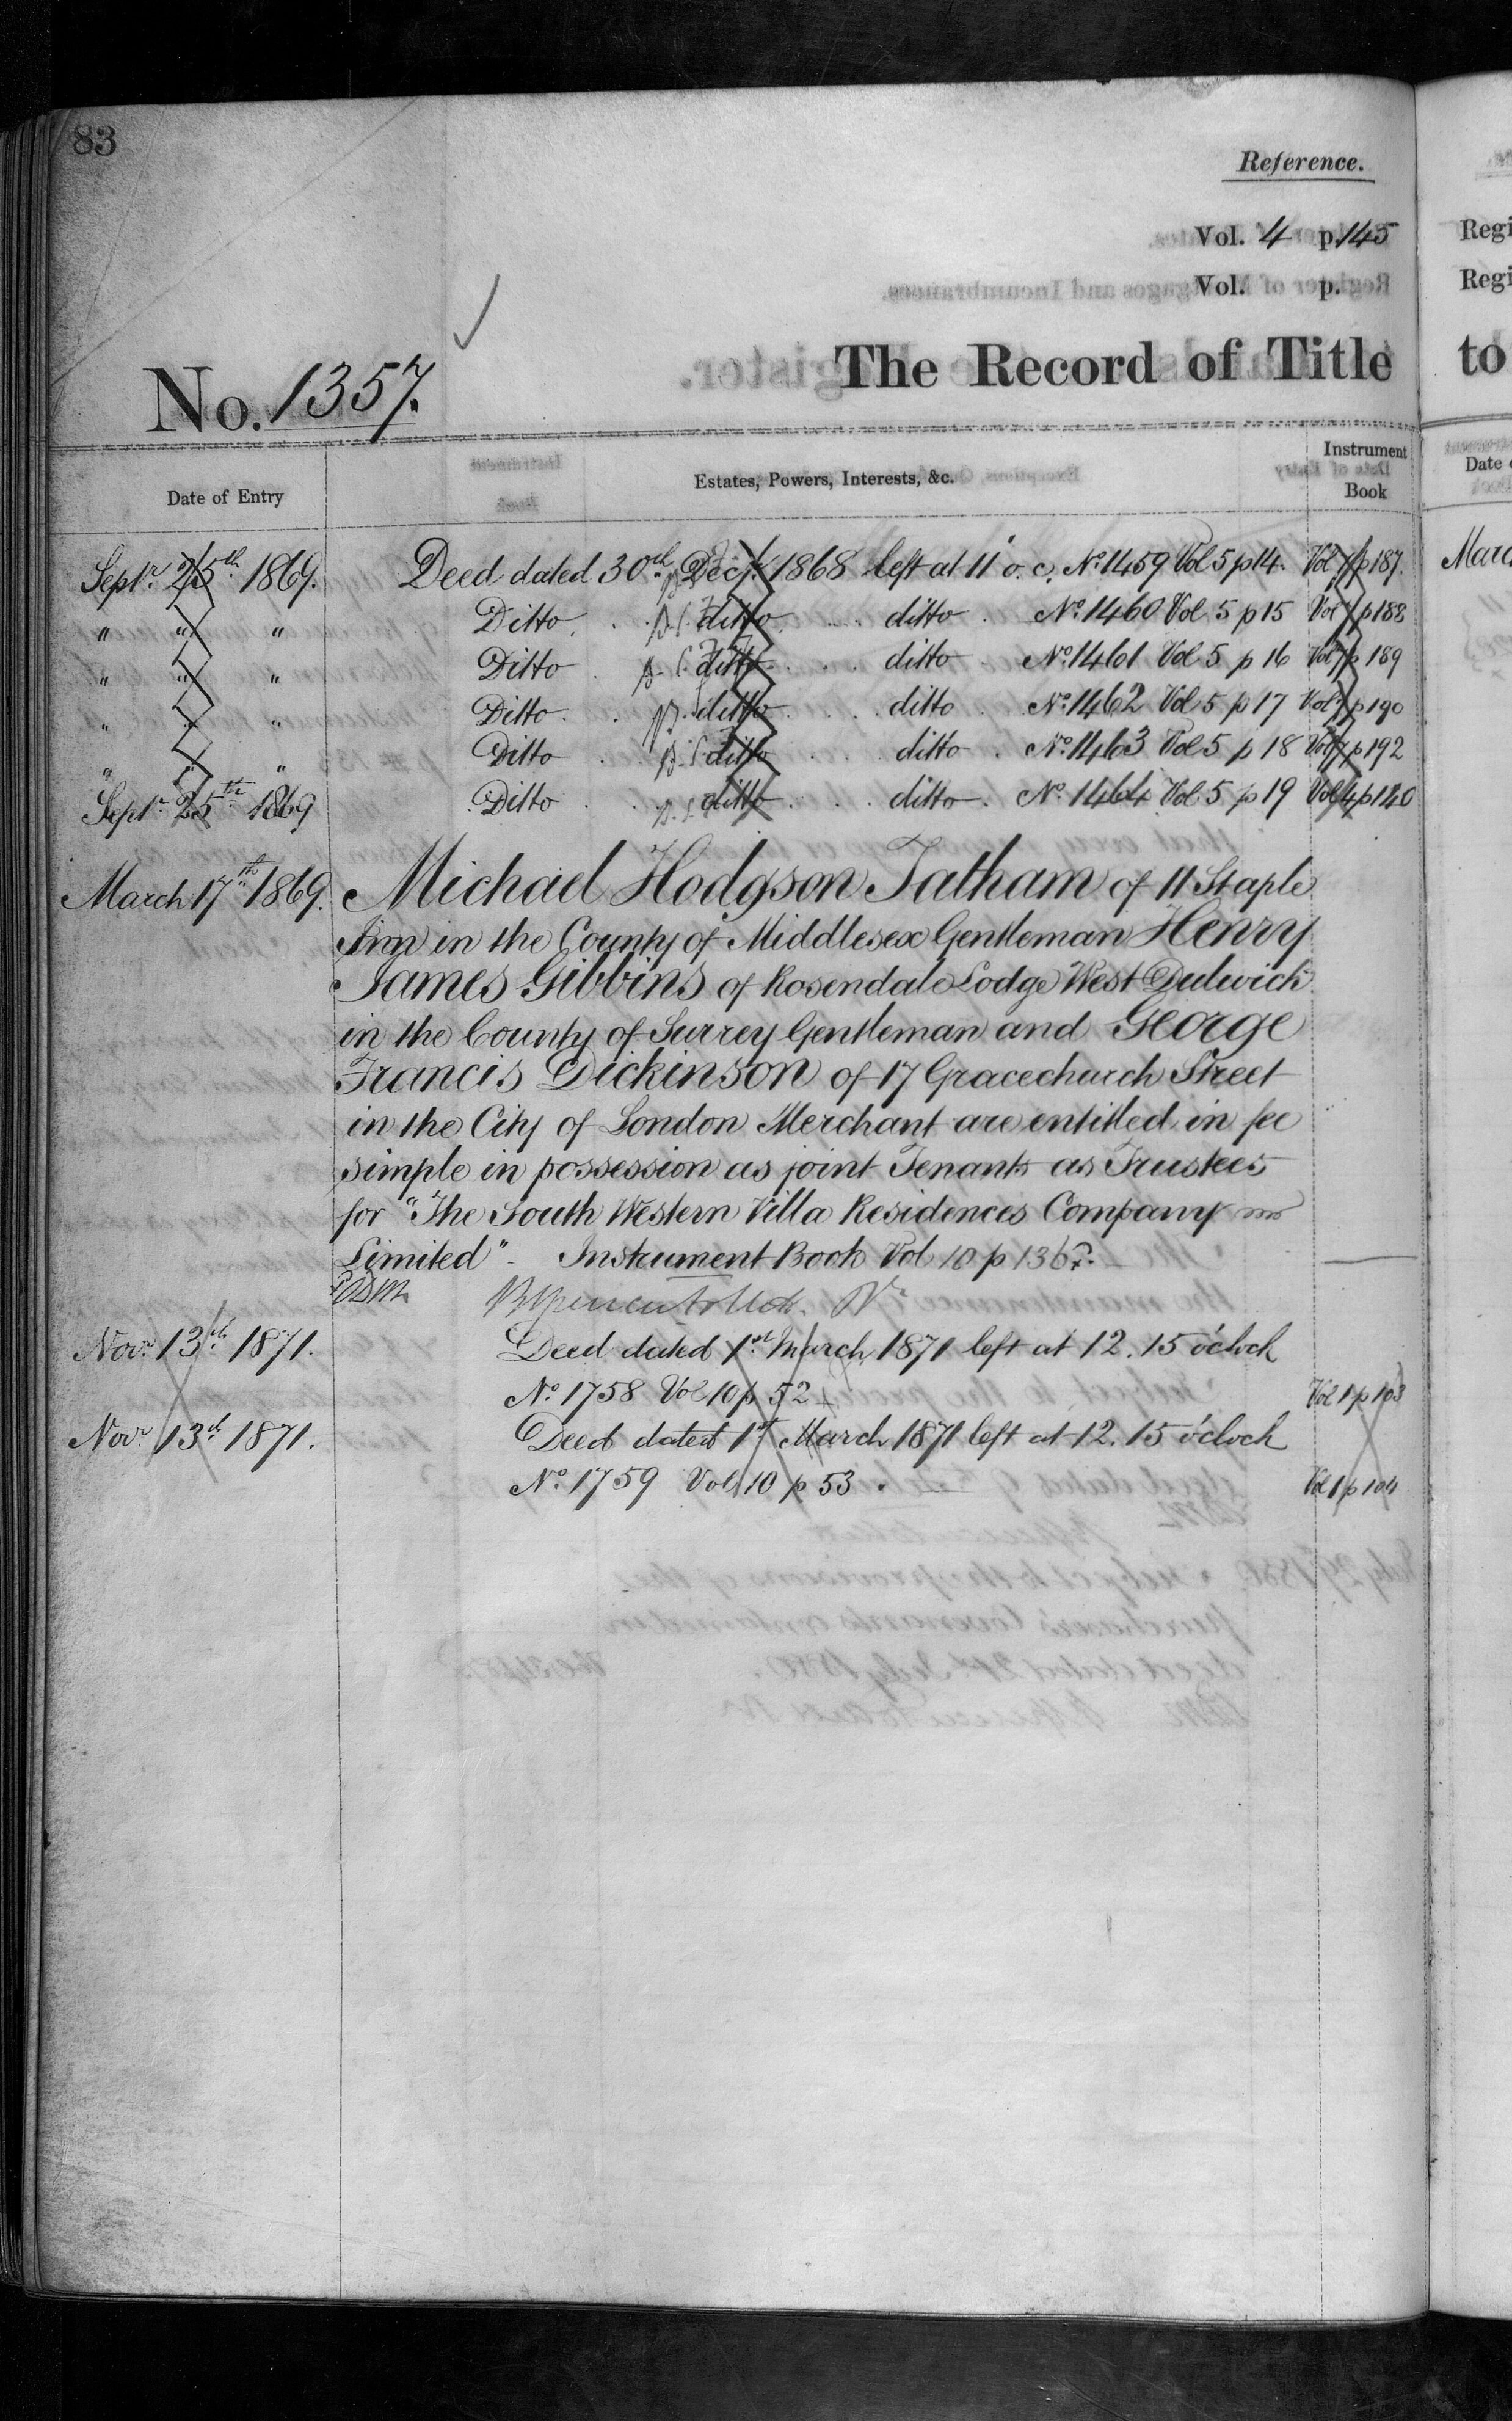 83
Reference.
Vol. 4 p. 145
Vol. p.
The Record of Title
No. 1357.
Date of Entry
Estates, Powers, Interests, &c.
Instrument Book
Septr 25th 1869. Deed dated 30th Decr 1868 left at 11 o.c. No 1459 Vol 5 p 14. Vol 7 p 187.
" " " Ditto ditto ditto No 1460 Vol 5 p 15 Vol 7 p 188
" " " Ditto ditto ditto No 1461 Vol 5 p 16 Vol 7 p 189
" " " Ditto ditto ditto No 1462 Vol 5 p 17 Vol 7 p 190
" " " Ditto ditto ditto No 1463 Vol 5 p 18 Vol 7 p 192
Septr 25th 1869 Ditto ditto ditto No 1464 Vol 5 p 19 Vol 4 p 120
March 17th 1869. Michael Hodgson Tatham of 11 Staple
Inn in the County of Middlesex Gentleman Henry
James Gibbins of Rosendale Lodge West Dulwich
in the County of Surrey Gentleman and George
Francis Dickinson of 17 Gracechurch Street
in the City of London Merchant are entitled in fee
simple in possession as joint Tenants as Trustees
for "The South Western Villa Residences Company
Limited" - Instrument Book Vol 10 p 136
Novr 13th 1871. Deed dated 1st March 1871 left at 12.15 o'clock
No 1758 Vol 10 p 52 Vol 1 p 103
Novr 13th 1871. Deed dated 1st March 1871 left at 12.15 o'clock
No 1759 Vol 10 p 53. Vol 1 p 104
Regi
Regi
to
Date
Marc